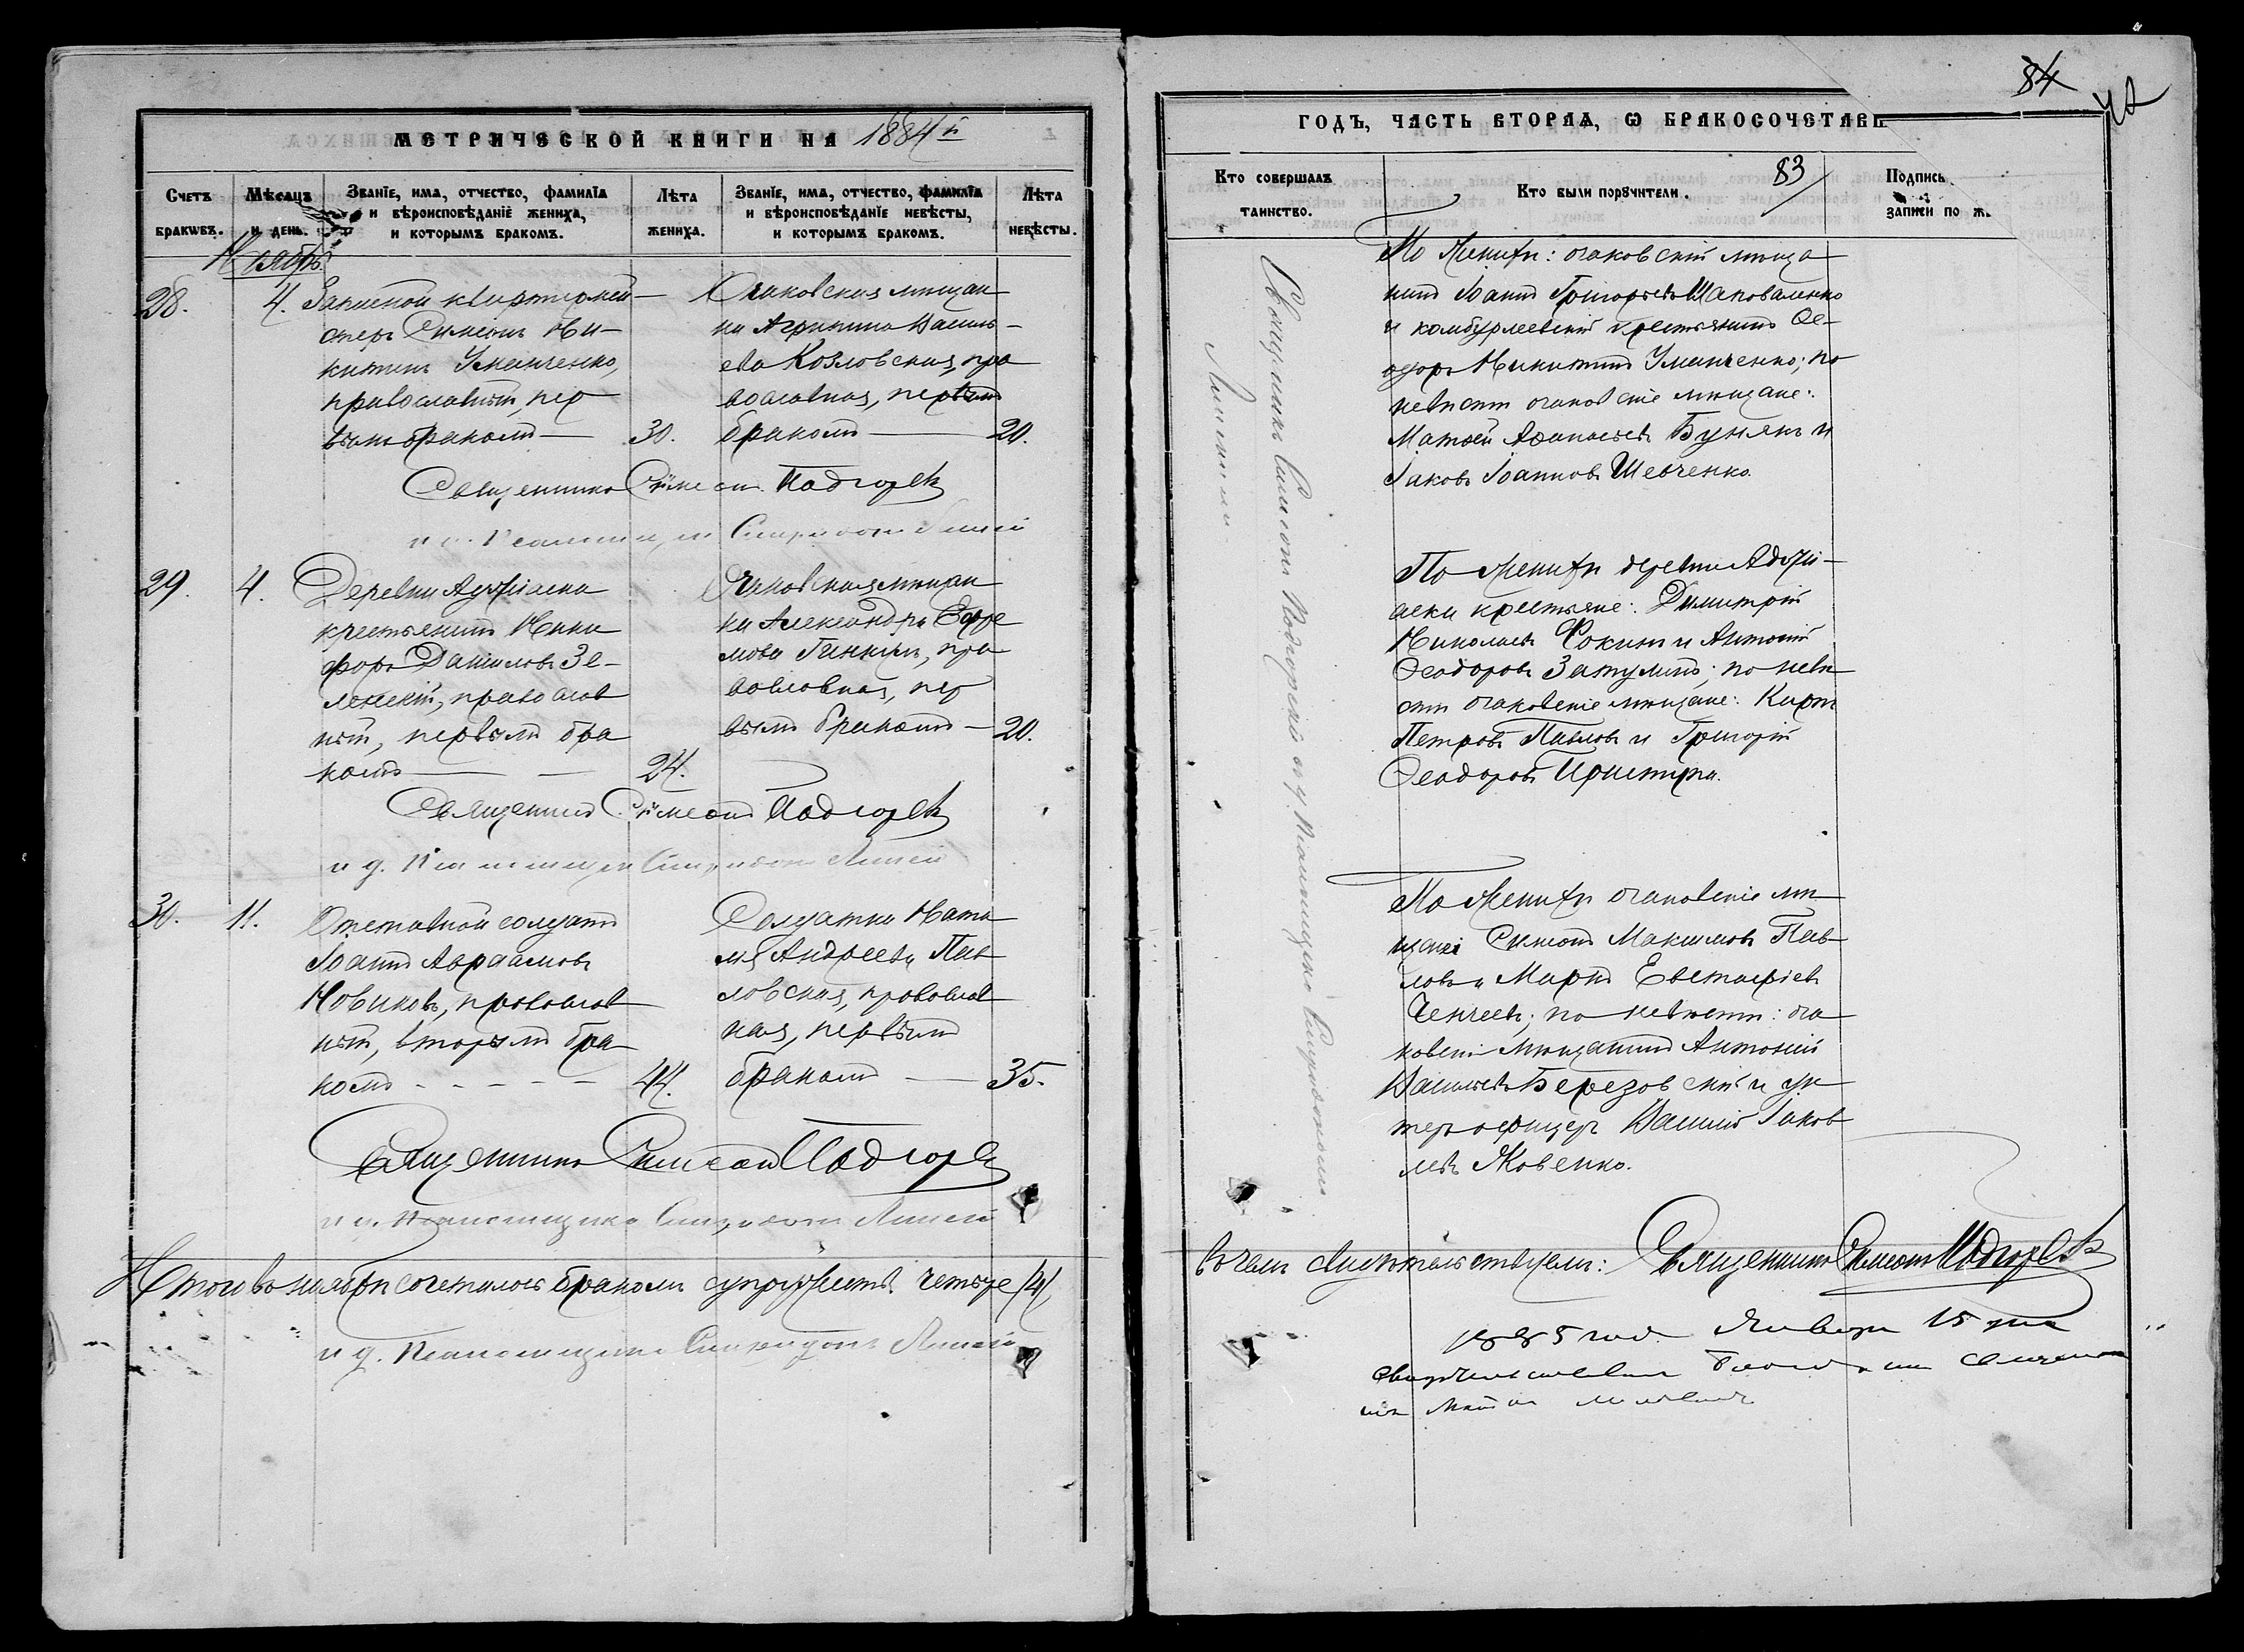 84
42
МЕТРИЧЕСКОЙ КНИГИ НА 1884й
Счетъ браквъ.
Мѣсяцъ и день.
Званїе, имѧ, отчество, фамилїѧ
и вѣроисповѣданїе жениха,
и которымъ бракомъ.
Лѣта жениха.
Званїе, имѧ, отчество, фамилїѧ
и вѣроисповѣданїе невѣсты,
и которымъ бракомъ.
Лѣта невѣсты.
Ноябрь
28.
4.
Запасной квартирмей-
стеръ Симеонъ Ни-
китинъ Уманченко,
православный, пер
вымъ бракомъ
30.
Очаковская мѣщан
ка Агрипина Василь-
ева Козловская, пра
вославная, первымъ
бракомъ
20.
Священникъ Симеонъ Подгорск
и д. Псаломщика Спиридонъ
29.
4.
Деревни
крестьянинъ Ники
форъ Даниловъ Зе-
ленскій, православ
ный, первымъ бра
комъ
24.
Очаковская мѣщан
ка Александра Ефре
мова, пра
вославная, пер
вымъ бракомъ
20.
Священникъ Симеонъ Подгорск
и д. Псаломщика Спиридонъ
30.
11.
Отставной солдатъ
Іоаннъ Авраамовъ
Новиковъ, православ
ный, вторымъ бра
комъ
44.
Солдатка Ната
лія Андреева Пав
ловская, православ
ная, первымъ
бракомъ
35.
Священникъ Симеонъ Подгорск
и д. Псаломщика Спиридонъ
Итого въ ноябрѣ сочеталось бракомъ супружествъ четыре /4/,
и д. Псаломщика Спиридонъ
ГОДЪ, ЧАСТЬ ВТОРАѦ, Ѡ БРАКОСОЧЕТАВ
83
Кто совершалъ таинство.
Кто были порꙋчители.
Подпись
записи по ж.
Священникъ Симеонъ Подгорскій съ Псаломщикомъ Спиридономъ
По женихѣ: очаковскій мѣща
нинъ Іоаннъ Григорьевъ Шаповаленко
и комбурлеевскій крестьянинъ Ѳе-
одоръ Никитинъ Уманченко; по
невѣстѣ очаковскіе мѣщане:
Матѳей Аѳанасьевъ Бунякъ и
Іаковъ Іоанновъ Шевченко.
По женихѣ деревни
крестьяне: Димитрій
Николаевъ Фокинъ и Антоній
Ѳеодоровъ Затулинъ; по невѣ
стѣ очаковскіе мѣщане: Кирилъ
Петровъ Павловъ и Григорій
Ѳеодоровъ
По женихѣ очаковскіе мѣ
щане Симеонъ Максимовъ Пав-
ловъ и Маркъ Евстафіевъ
по невѣстѣ: оча
ковскій мѣщанинъ Антоній
Васильевъ Березовскій и ун
теръ офицеръ Василій Іаков
левъ Яковенко.
въ чемъ свидѣтельствуемъ: Священникъ Симеонъ Подгорск
1885 года Января 15 дня